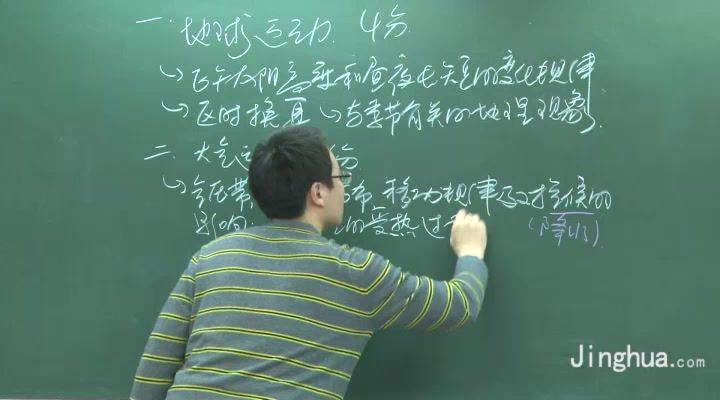 一. 地球运动. 4分.
↳正午太阳高度和昼夜长短的变化规律
↳区时换算 ↳与季节有关的地理现象.
二. 大气运 分
↳气压带 布、移动规律及对气候的
影响. 的受热过
(降水).
Jinghua.com